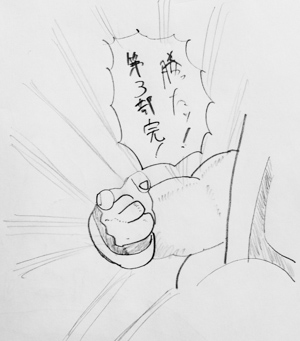 勝ったッ!
第3部完!